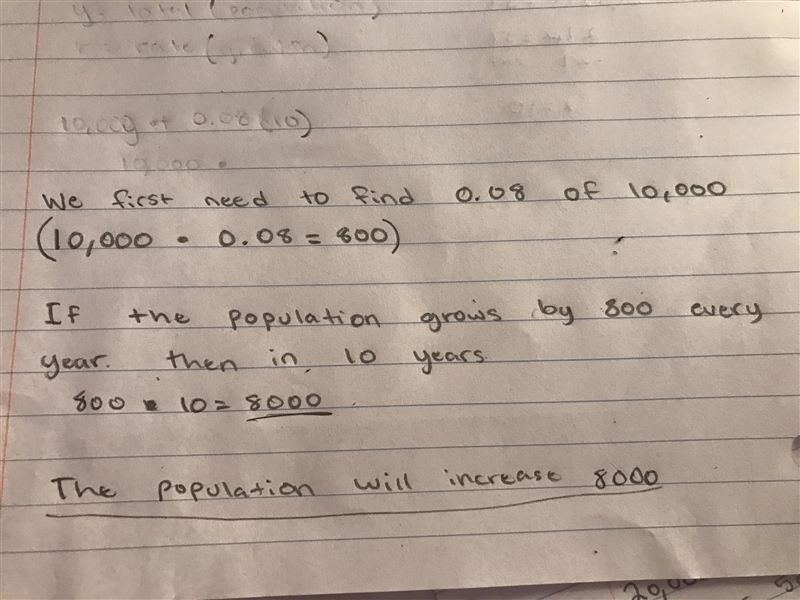 y = total (population)
r = rate (
10,000 + 0.08 (10)
10,000 •
We first need to find 0.08 of 10,000
(10,000 • 0.08 = 800)
If the population grows by 800 every
year. then in 10 years
800 • 10 = 8000
The population will increase 8000
20,00